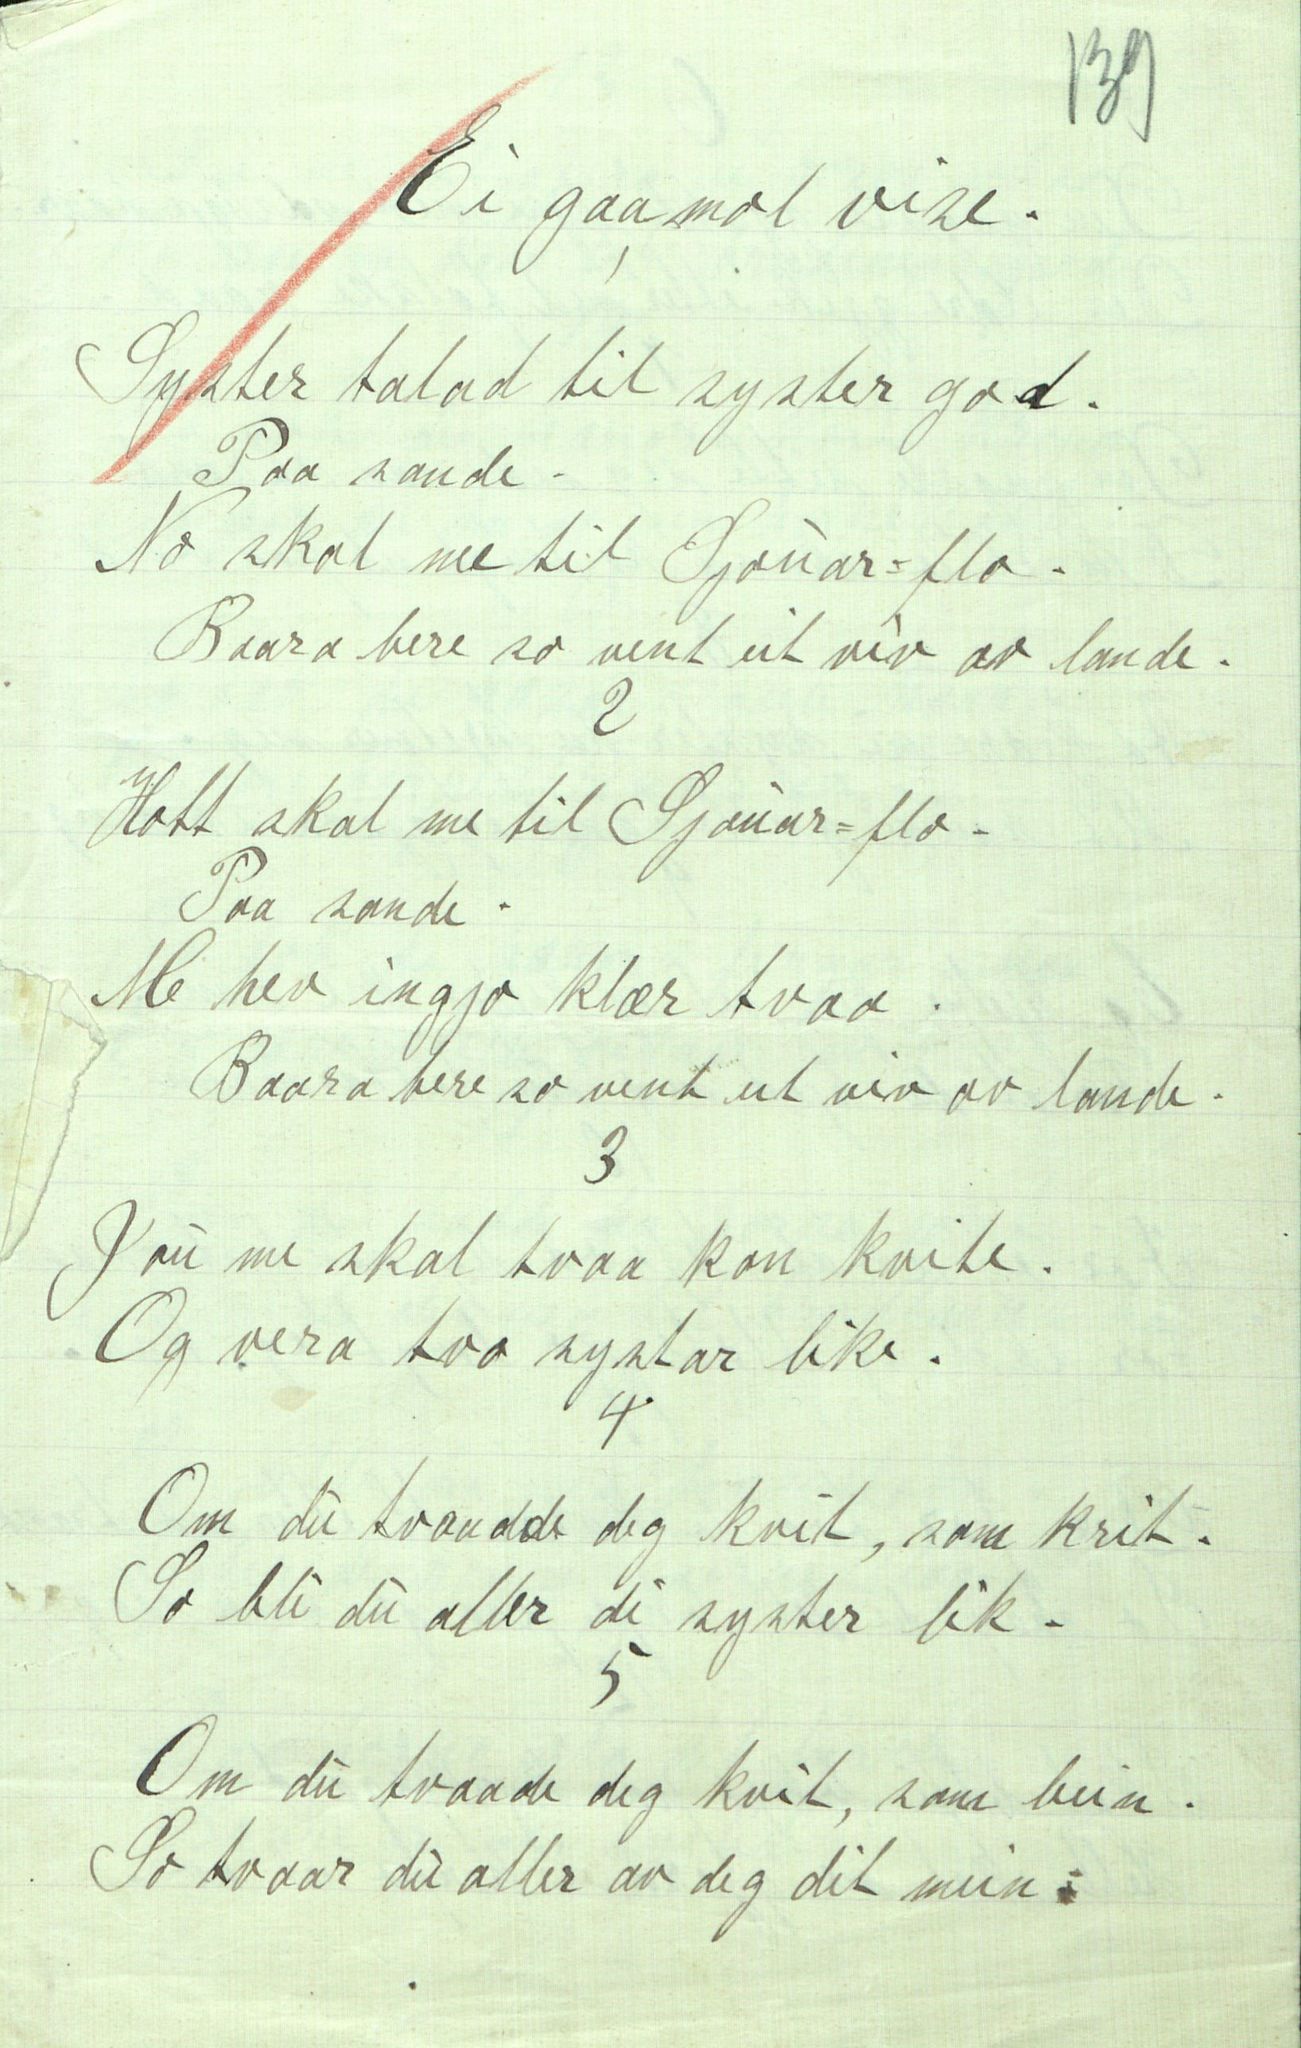 139
Ei gaamol vise.
Syster talad til syster god.
Paa sande -
No skal me til Sjouar=flo.
Baara bere so vent eit viv av lande.
2
Hott skal me til Sjouar=flo -
Paa sande.
Me hev ingjo klær tvaa.
Baara bere so vent et viv av lande.
3
Jou me skal tvaa kon kvite.
Og vera tvo systar like.
4
Om du tvaadde deg kvit, som krit.
So bli du aller di syster lik -
5
Om du tvaade deg kvit, som bein.
So tvaar du aller av deg dit mein.